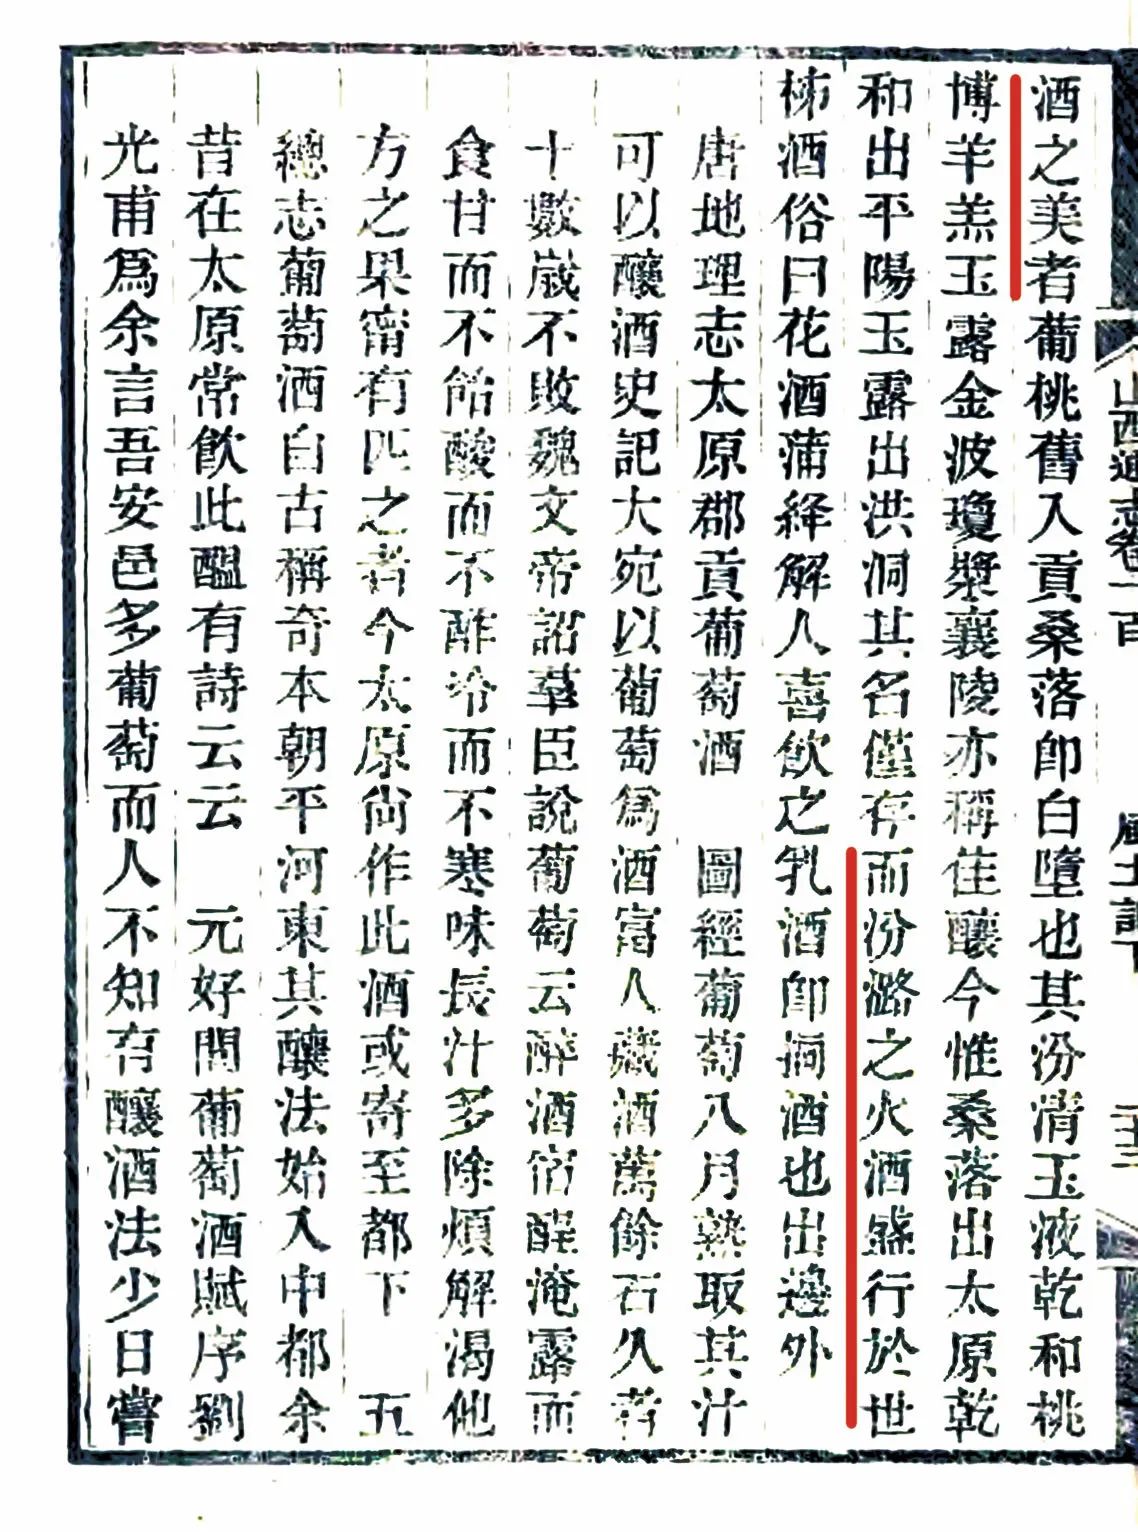 山西通志卷一百 風土記下
酒之美者葡桃舊入貢桑落卽白墮也其汾清玉液乾和桃
博羊羔玉露金波瓊漿襄陵亦稱佳釀今惟桑落出太原乾
和出平陽玉露出洪洞其名僅存而汾潞之火酒盛行於世
柹酒俗曰花酒蒲絳解人喜飲之乳酒卽挏酒也出邊外
唐地理志太原郡貢葡萄酒 圖經葡萄八月熟取其汁
可以釀酒史記大宛以葡萄爲酒富人藏酒萬餘石久者
十數嵗不敗魏文帝詔羣臣說葡萄云醉酒宿酲淹露而
食甘而不飴酸而不酢冷而不寒味長汁多除煩解渴他
方之果甯有匹之者今太原尙作此酒或寄至都下 五
總志葡萄酒自古稱奇本朝平河東其釀法始入中都余
昔在太原常飲此醞有詩云云 元好問葡萄酒賦序劉
光甫爲余言吾安邑多葡萄而人不知有釀酒法少日嘗